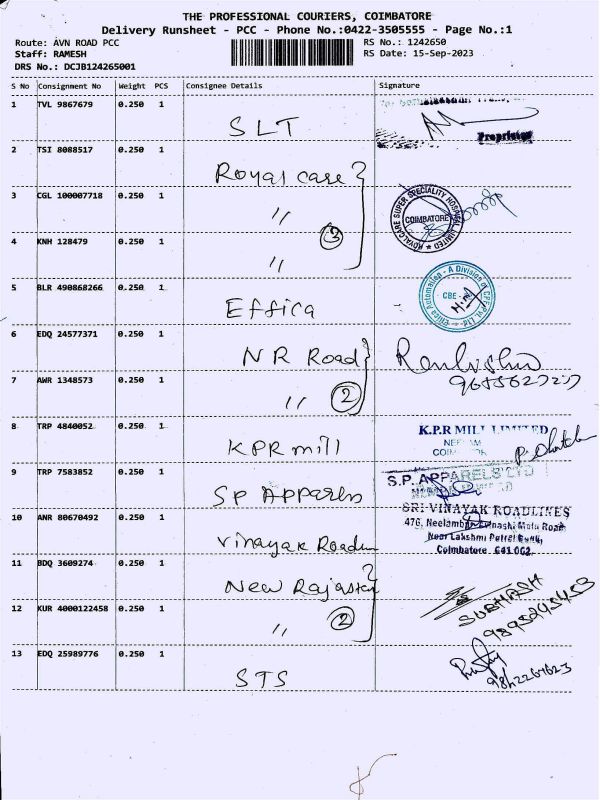 THE PROFESSIONAL COURIERS, COIMBATORE
Delivery Runsheet - PCC - Phone No.:0422-3505555 - Page No.:1
Route: AVN ROAD PCC RS No.: 1242650
Staff: RAMESH RS Date: 15-Sep-2023
DRS No.: DCJB124265001
S No Consignment No Weight PCS Consignee Details Signature
1 TVL 9867679 0.250 1 SLT
Proprietor
2 TSI 8088517 0.250 1 Royal case
3 CGL 100007718 0.250 1 〃 3
ROYALCARE SUPER SPECIALITY HOSPITAL LIMITED
COIMBATORE
4 KNH 128479 0.250 1 〃
5 BLR 490868266 0.250 1 Effica
Effica Automation - A Division of
CBE
6 EDQ 24577371 0.250 1 NR Road
7 AWR 1348573 0.250 1 〃 2
8 TRP 4840052 0.250 1 KPR mill
K.P.R MILL LIMITED
9 TRP 7583852 0.250 1 SP Apparels
S.P. APPARELS LTD
10 ANR 80670492 0.250 1 Vinayak
SRI VINAYAK ROADLINES
476, Neelambur Road
Near Lakshmi Petrol Bunk,
Coimbatore 641 062
11 BDQ 3609274 0.250 1 New
12 KUR 4000122458 0.250 1 〃 2
SUBHASH
9895245453
13 EDQ 25989776 0.250 1 STS